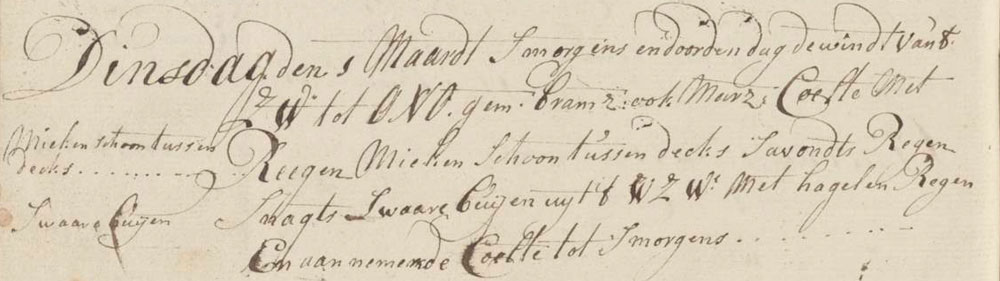 Dinsdag den 1 Maardt Smorgens en door den dag de windt van 't
Z W: tot ONO. gem: bramz: ook Marz: Coelte Met
Mieken schoon tussen
decks ..........
Reegen Mieken Schoon tussen decks Savondts Regen
Swaare Buijen
Snagts Swaare Buijen uyt 't WZW: Met hagel en Regen
En aannemende Coelte tot Smorgens ..........